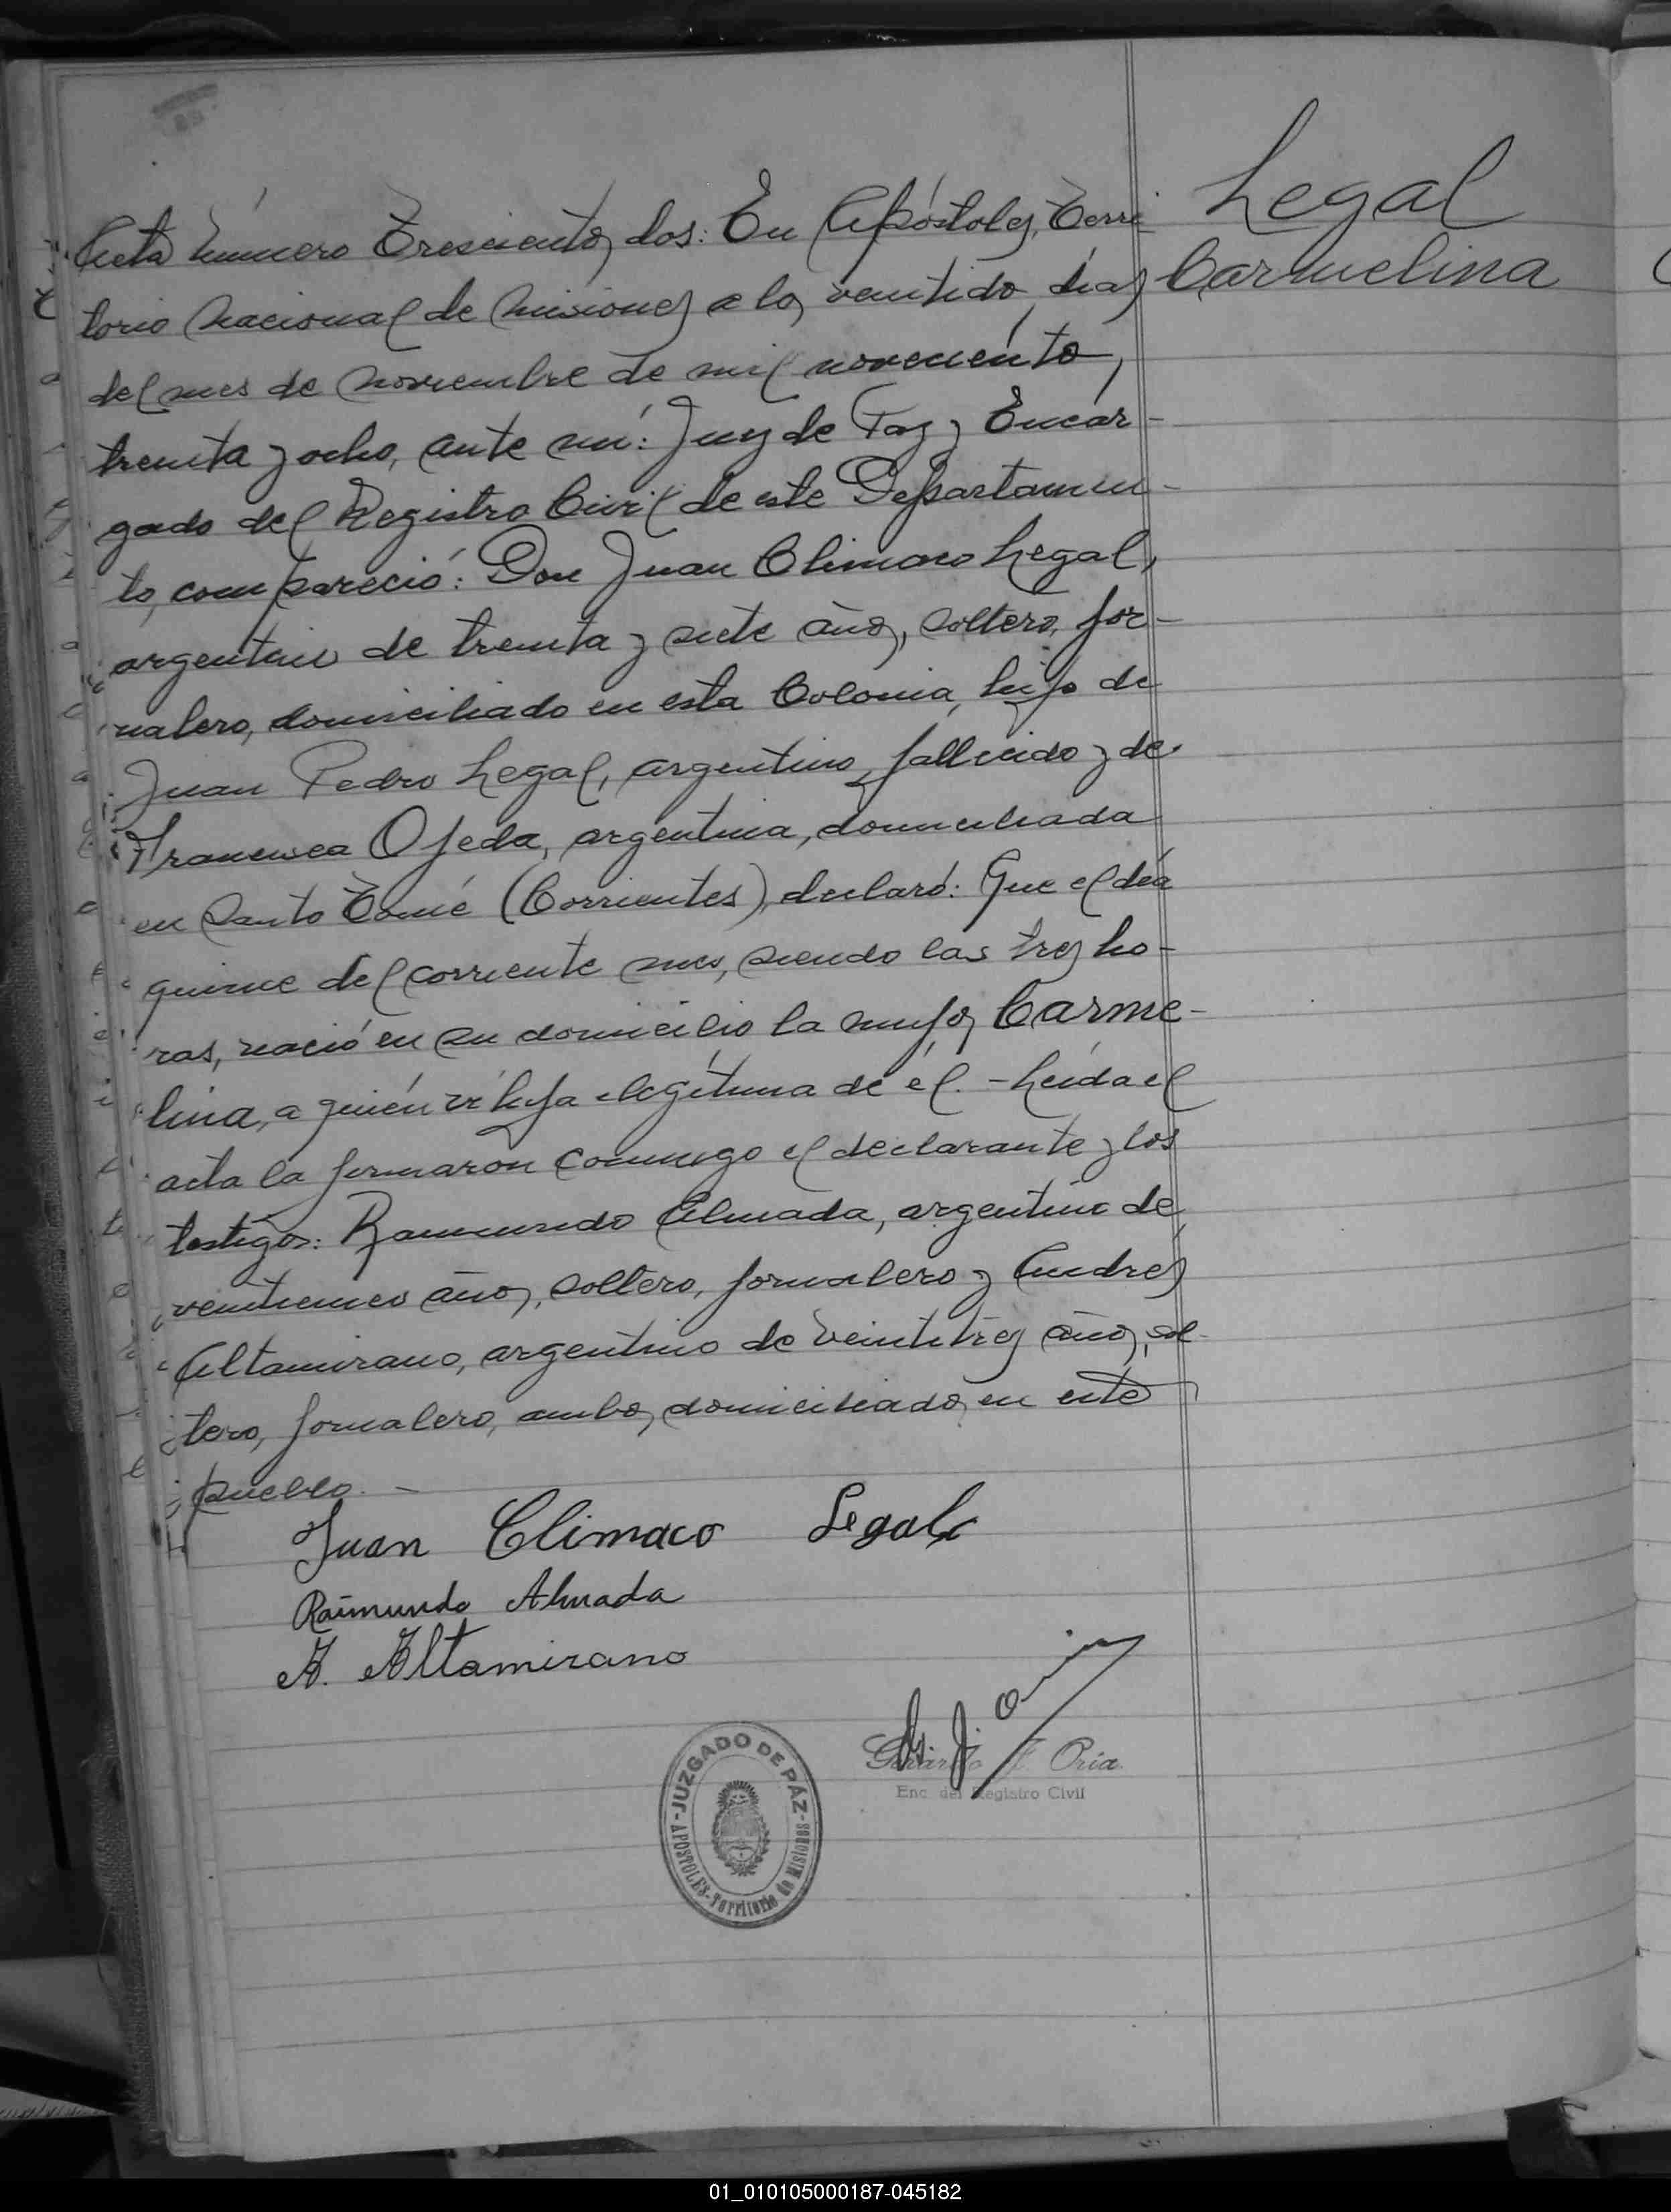 Legal
Carmelina
Acta número Trescientos dos: En Apóstoles, Terri
torio Nacional de Misiones a los veintidos días
del mes de Noviembre de mil novecientos
treinta y ocho, ante mí: Juez de Paz y Encar-
gado del Registro Civil de este Departamen-
to, compareció: Don Juan Climaco Legal,
argentino de treinta y siete años, soltero, jor-
nalero, domiciliado en esta Colonia, hijo de
Juan Pedro Legal, argentino, fallecido y de
Francisca Ojeda, argentina, domiciliada
en Santo Tomé (Corrientes), declaró: Que el día
quince del corriente mes, siendo las tres ho-
ras, nació en su domicilio la mujer Carme-
lina, a quién vi hija ilegítima de él. - Leída el
acta la firmaron conmigo el declarante y los
testigos: Raimundo Almada, argentino de
veinticinco años, soltero, jornalero y Andrés
Altamirano, argentino de veintitrés años, sol-
tero, jornalero, ambos domiciliados en este
pueblo. -
Juan Climaco Legal
Raimundo Almada
A. Altamirano
J. Oria
Enc. del Registro Civil
JUZGADO DE PÁZ
APOSTOLES - Territorio de Misiones
01_010105000187-045182